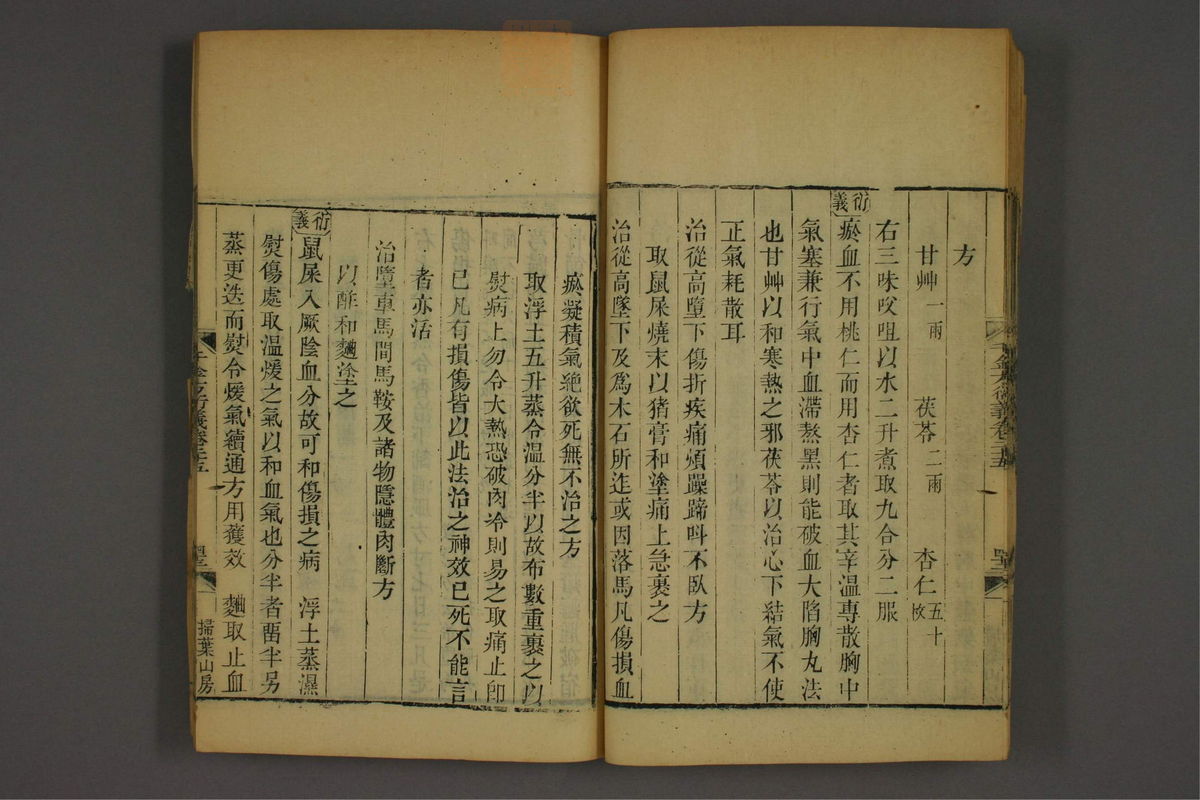 方
甘艸一兩 茯苓二兩 杏仁五十枚
右三味㕮咀以水二升煮取九合分二服
衍義 瘀血不用桃仁而用杏仁者取其辛溫專散胸中
氣塞兼行氣中血滯熬黑則能破血大陷胸丸法
也甘艸以和寒熱之邪茯苓以治心下結氣不使
正氣耗散耳
治從高墮下傷折疾痛煩躁蹄呌不臥方
取鼠屎燒末以猪膏和塗痛上急裹之
治從高墜下及爲木石所迮或因落馬凡傷損血
瘀凝積氣絶欲死無不治之方
取浮土五升蒸令溫分半以故布數重裹之以
熨病上勿令大熱恐破肉冷則易之取痛止卽
已凡有損傷皆以此法治之神效已死不能言
者亦活
治墮車馬間馬鞍及諸物隱體肉斷方
以酢和麵塗之
衍義 鼠屎入厥陰血分故可和傷損之病 浮土蒸濕
熨傷處取溫煖之氣以和血氣也分半者畱半另
蒸更迭而熨令煖氣續通方用獲效 麵取止血
千金方衍義卷二十五
掃葉山房